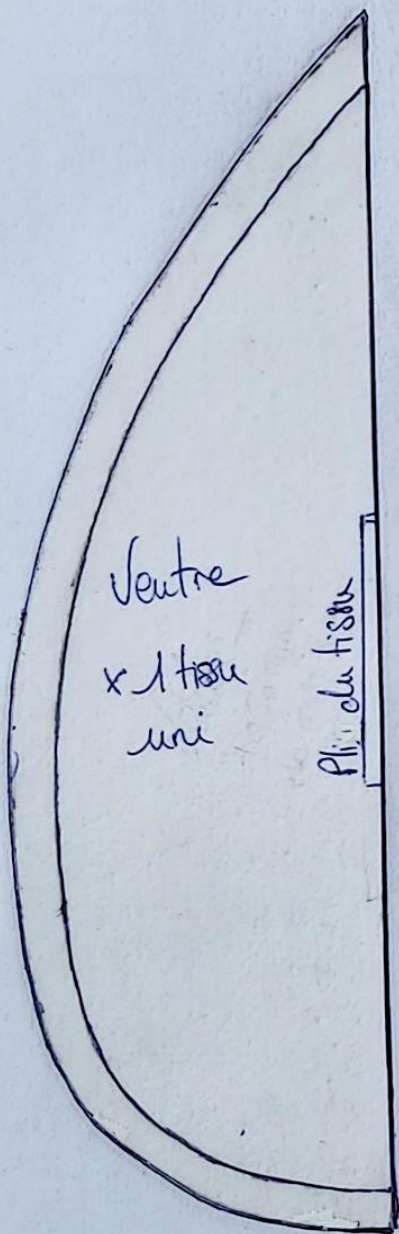 Ventre
x 1 tissu
uni
Pli du tissu